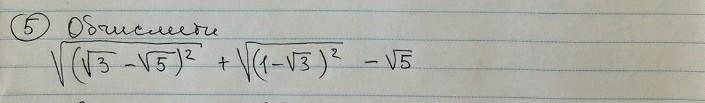 ⑤ Обчислити
√(√3 - √5)² + √(1 - √3)² - √5